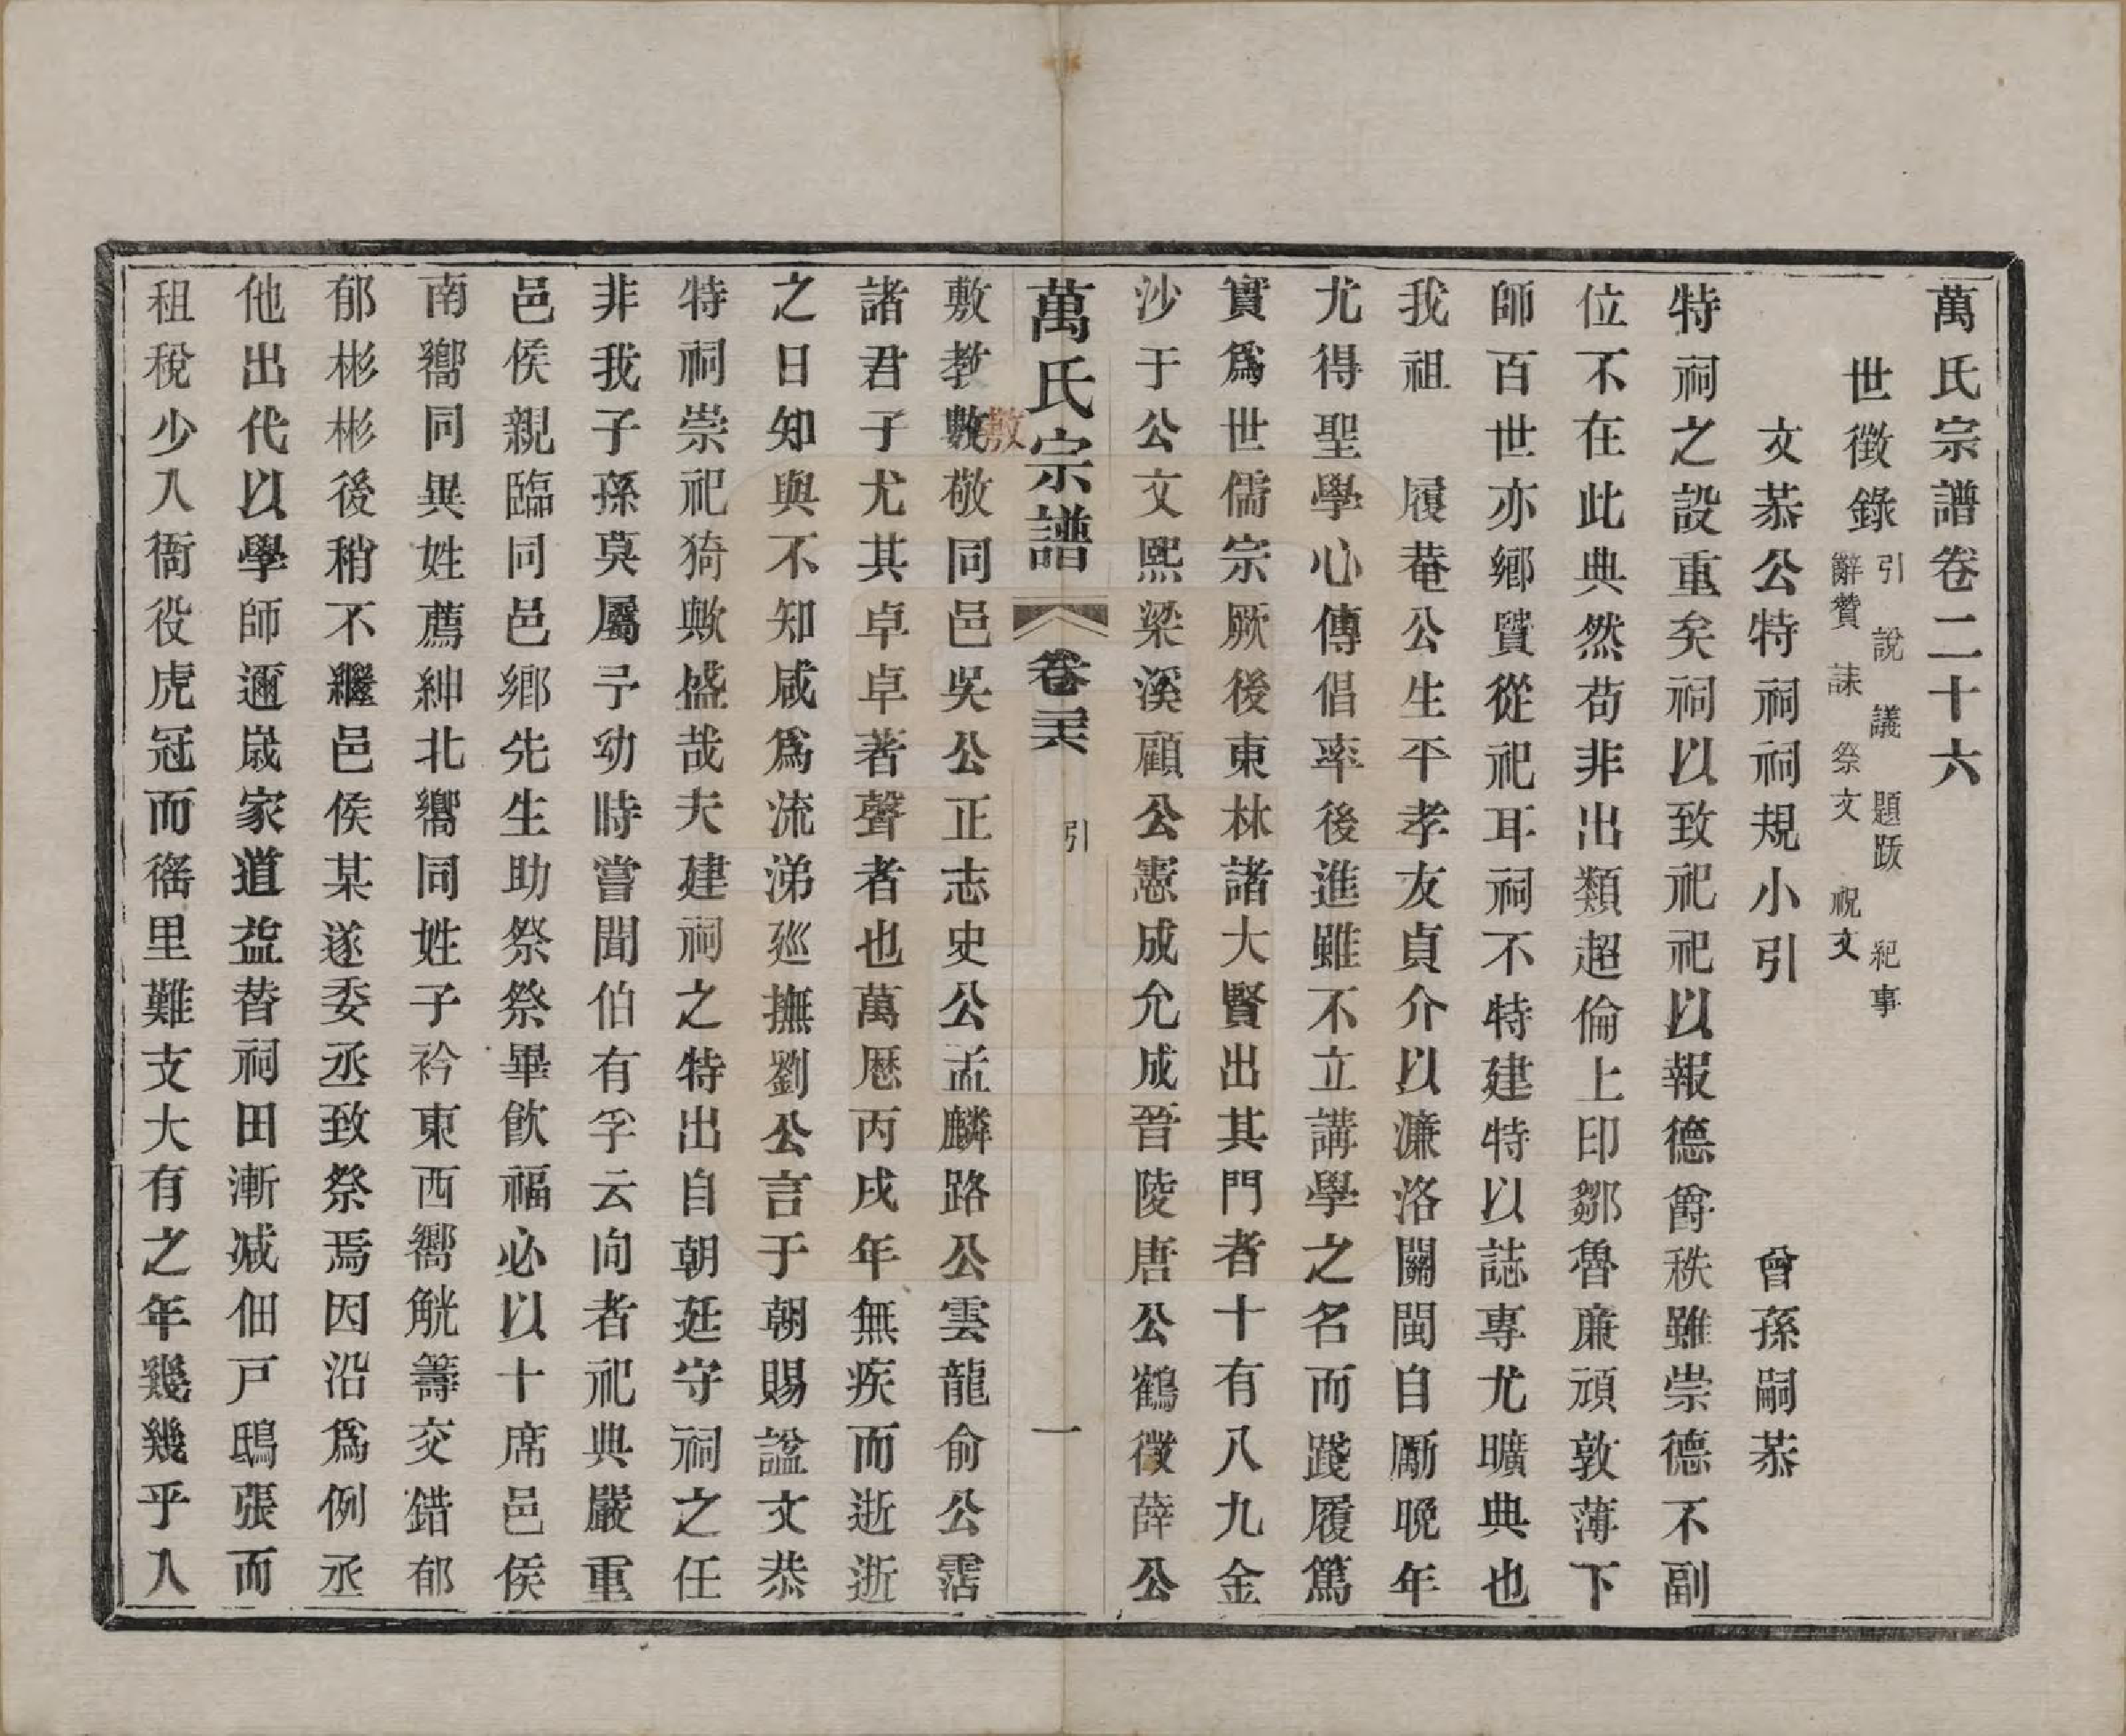 萬氏宗譜卷二十六
世徵錄
引 說 議 題跋 紀事
辭贊 誄 祭文 祝文
文恭公特祠祠規小引 曾孫嗣恭
特祠之設重矣祠以致祀祀以報德爵秩雖崇德不副
位不在此典然苟非出類超倫上印鄒魯廉頑敦薄下
師百世亦鄉賢從祀耳祠不特建特以誌專尤曠典也
我祖 履菴公生平孝友貞介以濂洛關閩自勵晚年
尤得聖學心傳倡率後進雖不立講學之名而踐履篤
實爲世儒宗厥後東林諸大賢出其門者十有八九金
沙于公文熙梁溪顧公憲成允成晉陵唐公鶴徵薛公
萬氏宗譜 卷二十六 引 一
敷教數敬同邑吳公正志史公孟麟路公雲龍俞公霑
敷
諸君子尤其卓卓著聲者也萬厯丙戌年無疾而逝逝
之日知與不知咸爲流涕廵撫劉公言于朝賜諡文恭
特祠崇祀猗歟盛哉夫建祠之特出自朝廷守祠之任
非我子孫莫屬予幼時嘗聞伯有孚云向者祀典嚴重
邑侯親臨同邑鄉先生助祭祭畢飲福必以十席邑侯
南嚮同異姓薦紳北嚮同姓子衿東西嚮觥籌交錯郁
郁彬彬後稍不繼邑侯某遂委丞致祭焉因沿爲例丞
他出代以學師邇嵗家道益替祠田漸减佃戸鴟張而
租稅少入衙役虎冠而徭里難支大有之年幾幾乎入